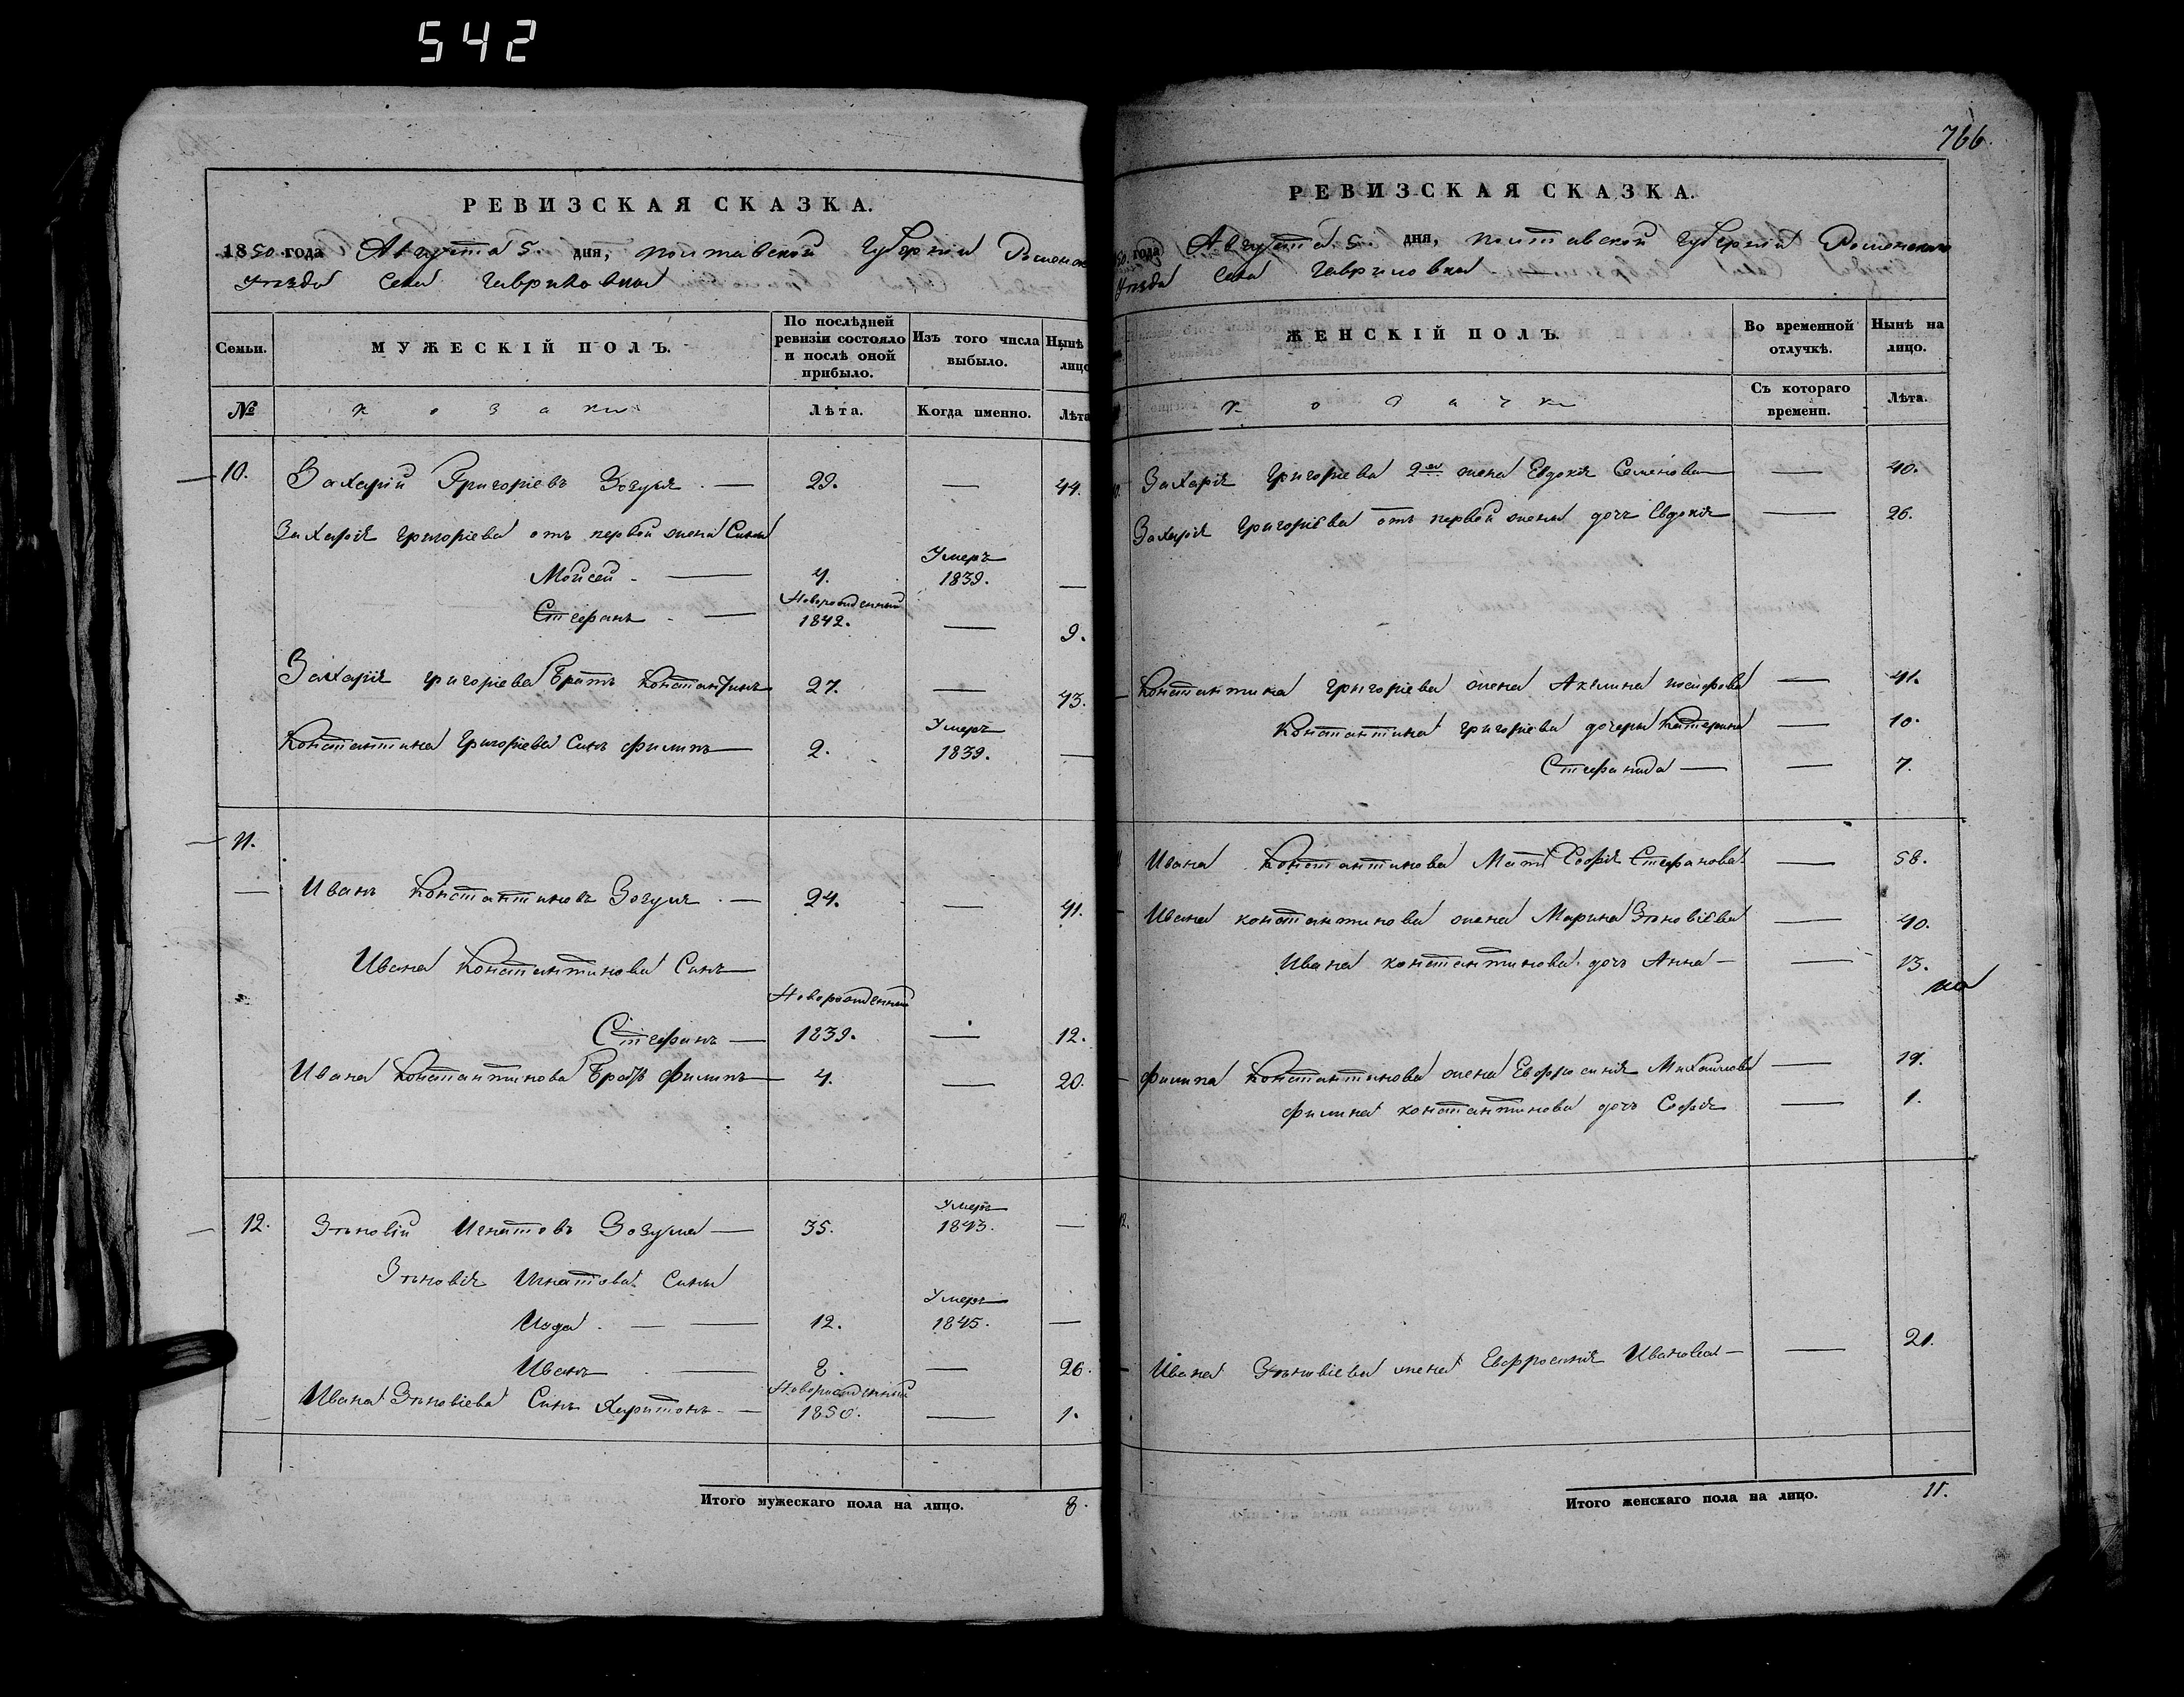 542
РЕВИЗСКАЯ СКАЗКА.
1850 года Августа 5. дня, Полтавской Губернии Роменска
Уезда Села Гавриловки
Семьи.
МУЖЕСКІЙ ПОЛЪ.
По послѣдней ревизіи состояло и послѣ оной прибыло.
Изъ того числа выбыло.
Нынѣ лицо
№
козаки
Лѣта.
Когда именно.
Лѣта
10. Захарій Григоріевъ Зозуля — 29. — 44.
Захарія Григоріева отъ первой жены Сыны
Мойсей — 4. Умеръ 1839. —
Стефанъ — Новорожденный 1842. — 9.
Захарія Григоріева Братъ Константинъ 27. — 43.
Константина Григоріева Сынъ Филипъ — 2. Умеръ 1839. —
11.
Иванъ Константиновъ Зозуля — 24. — 41.
Ивана Константинова Сынъ
Стефанъ — Новорожденный 1839. — 12.
Ивана Константинова Братъ Филипъ — 4. — 20.
12. Зѣновій Игнатовъ Зозуля — 35. Умеръ 1843. —
Зѣновія Игнатова Сыны
— 12. Умеръ 1845. —
Иванъ — 8. — 26.
Ивана Зѣновіева Сынъ Харитонъ — Новорожденный 1850. — 1.
Итого мужескаго пола на лицо. 8.
766.
РЕВИЗСКАЯ СКАЗКА.
50. года Августа 5. дня, Полтавской Губерніи Роменскаго
Уезда Села Гавриловки
ЖЕНСКІЙ ПОЛЪ.
Во временной отлучкѣ.
Нынѣ на лицо.
козачки
Съ котораго времени.
Лѣта.
Захарія Григоріева 2ая жена Евдокія Семенова — — 40.
Захарія Григоріева отъ первой жены дочь Евдокія — 26.
Константина Григоріева жена Акилина Іосифова — 41.
Константина Григоріева дочери Катерина — 10.
Стефанида — — 7.
Ивана Константинова Мать Софія Стефанова — 58.
Ивана Константинова жена Марина Зѣновіева — 40.
Ивана Константинова дочь Анна — — 13.
Филипа Константинова жена Евфросинія Михайлова — 19.
Филипа Константинова дочь Софія — 1.
12.
Ивана Зѣновіева жена Евфросинія Иванова — — 21.
Итого женскаго пола на лицо. 11.